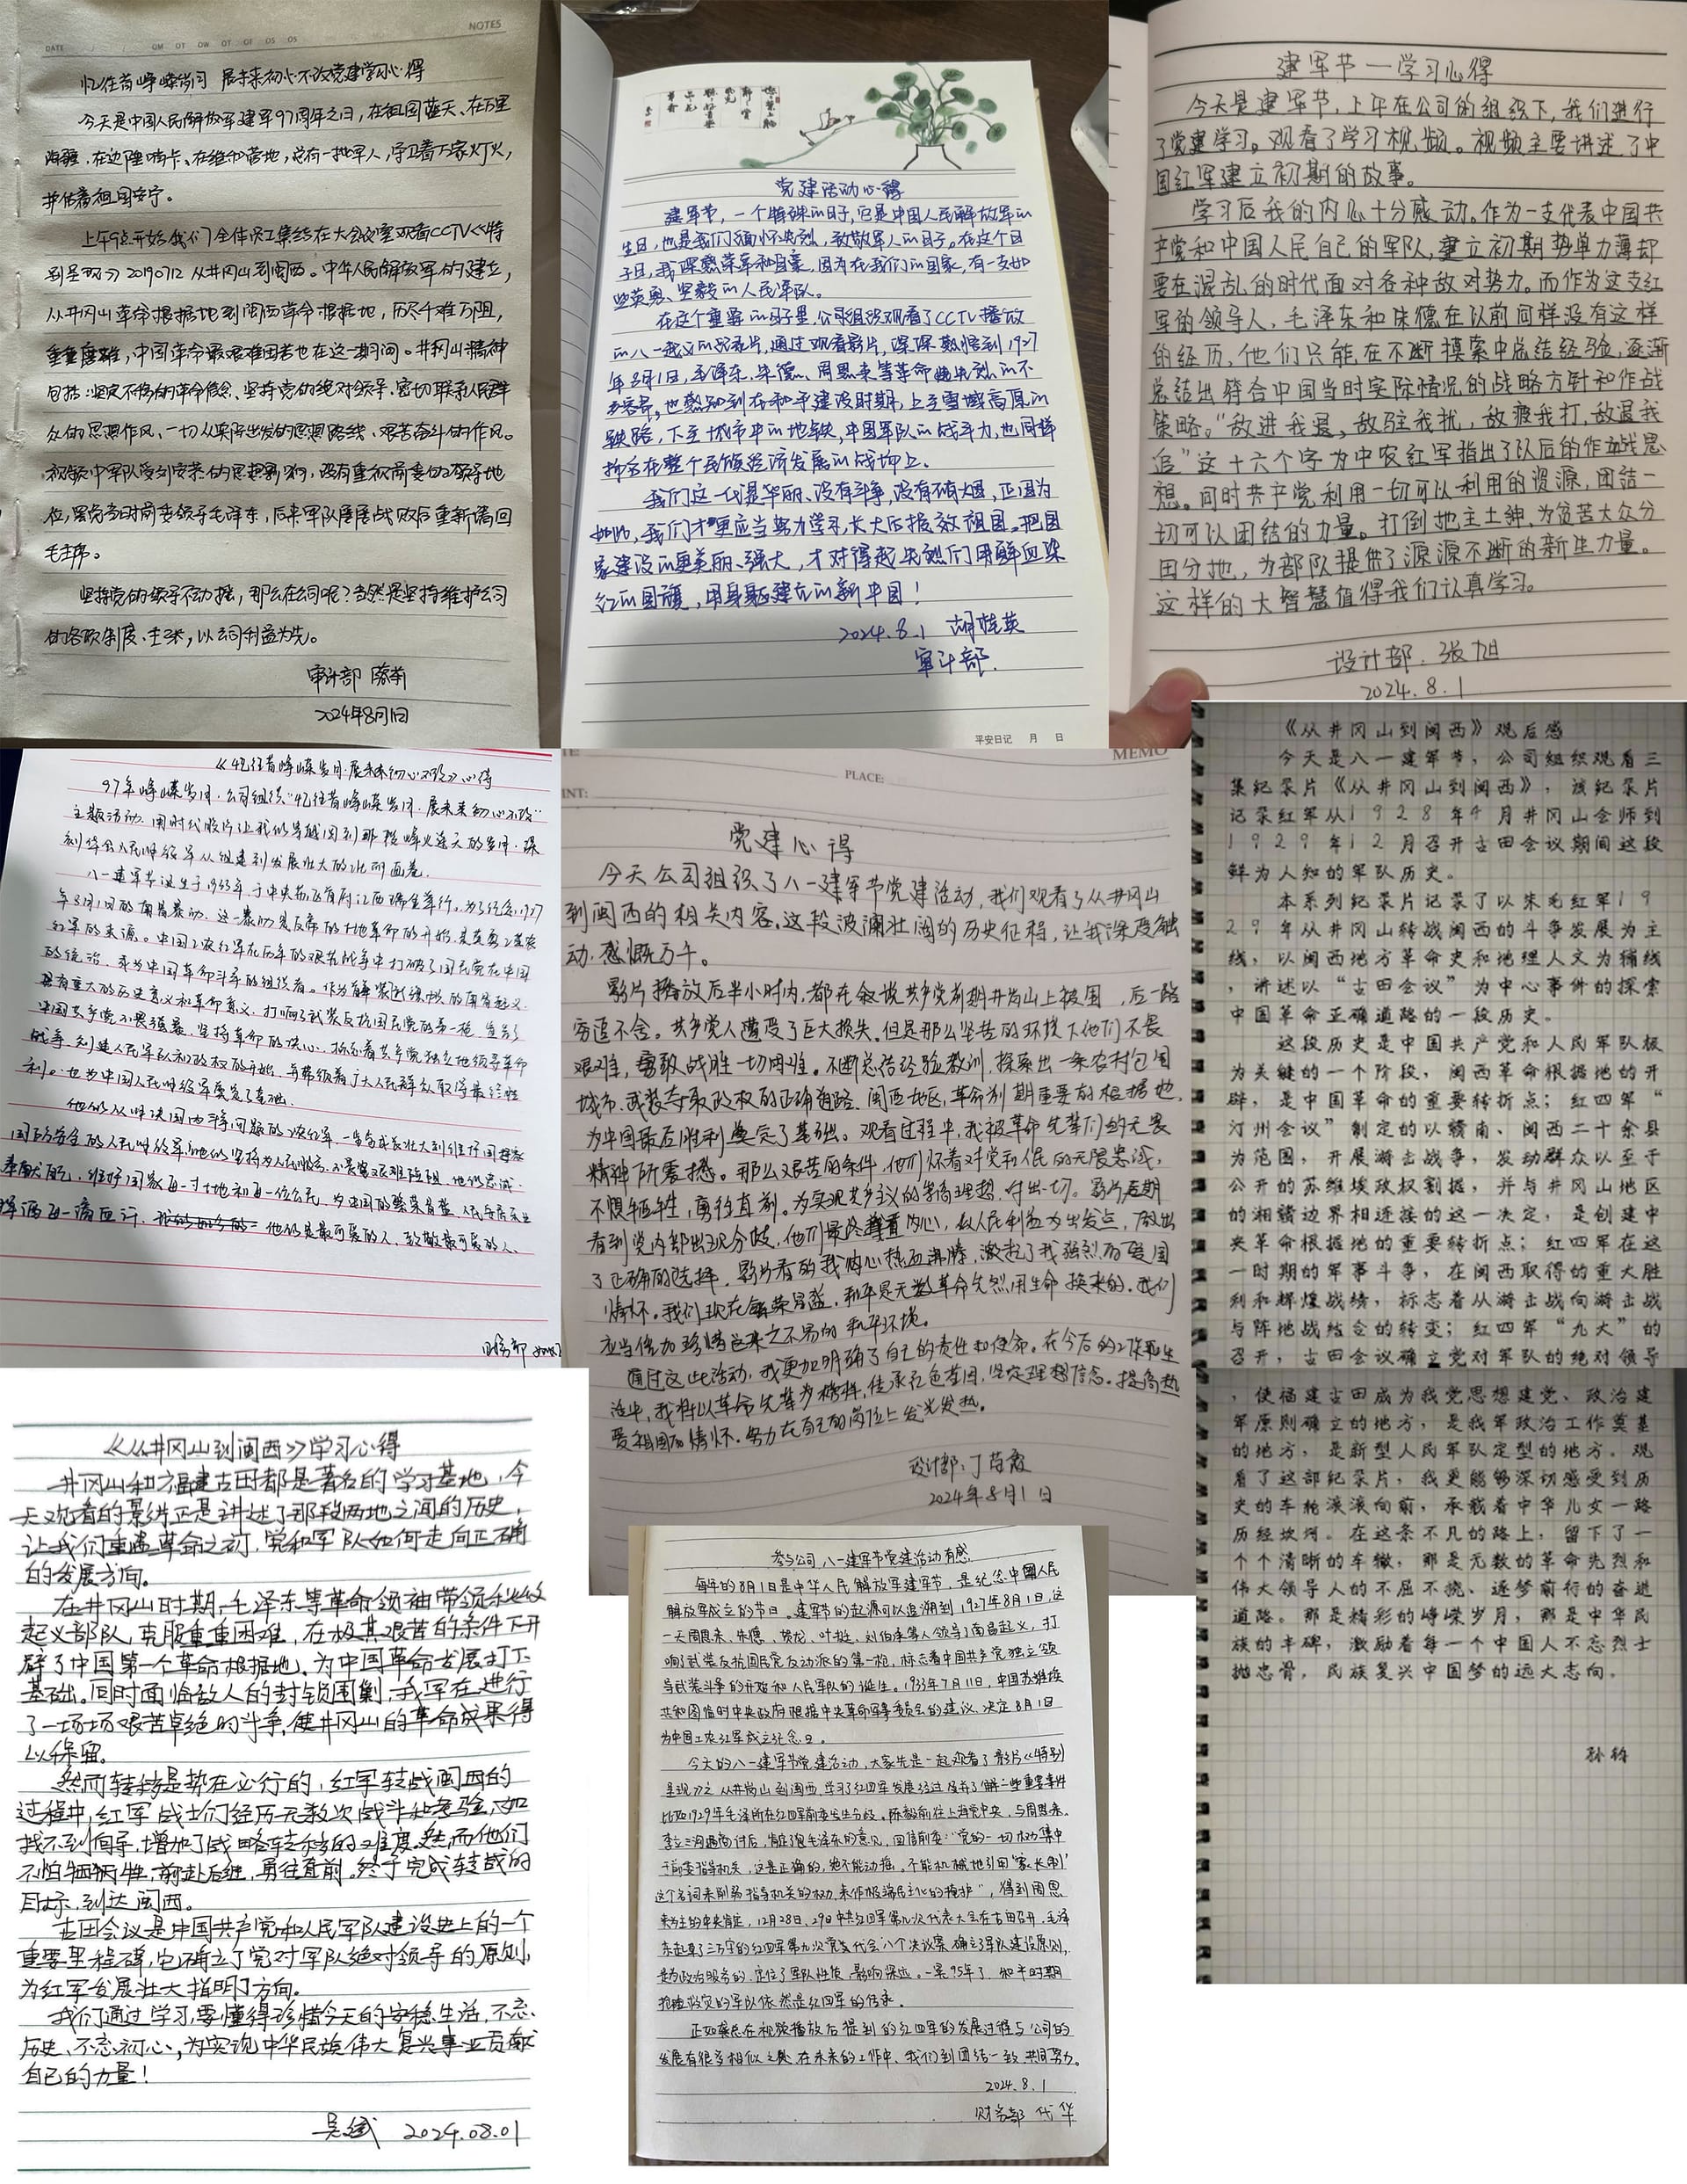 NOTES
DATE
忆往昔峥嵘岁月 展未来初心不改党建学习心得
今天是中国人民解放军建军97周年之日，在祖国蓝天、在万里
海疆、在边陲哨卡、在维和营地，总有一批军人，守卫着万家灯火，
护佑着祖国安宁。
上午9点开始我们全体员工集结在大会议室观看CCTV《特
别呈现》20190712 从井冈山到闽西。中华人民解放军的建立，
从井冈山革命根据地到闽西革命根据地，历尽千难万阻，
重重磨难，中国革命最艰难困苦也在这一期间。井冈山精神
包括：坚定不移的革命信念、坚持党的绝对领导、密切联系人民群
众的思想作风、一切从实际出发的思想路线、艰苦奋斗的作风。
视频中军队受到安恭的思想影响，没有重视前委的领导地
位，罢免当时前委领导毛泽东，后来军队屡屡战败后重新请回
毛主席。
坚持党的领导不动摇，那么在公司呢？当然是坚持维护公司
的各项制度、主张，以公司利益为先。
审计部 陈莉
2024年8月1日
党建活动心得
建军节，一个特殊的日子，它是中国人民解放军的
生日，也是我们缅怀先烈，致敬军人的日子。在这个日
子里，我深感荣幸和自豪，因为在我们的国家，有一支如
此英勇、坚毅的人民军队。
在这个重要的日子里，公司组织观看了CCTV播放
的八一起义的纪录片，通过观看影片，深深感悟到1927
年8月1日，毛泽东、朱德、周恩来等革命先烈的不
容易，也感知到在和平建设时期，上至雪域高原的
铁路，下至城市中的地铁，中国军队的战斗力，也同样
挥洒在整个民族经济发展的战场上。
我们这一代是华丽、没有斗争，没有硝烟，正因为
如此，我们才更应当努力学习，长大后报效祖国。把国
家建设的更美丽、强大，才对得起先烈们用鲜血染
红的国旗，用身躯建立的新中国！
2024.8.1 胡桂英
审计部.
平安日记 月 日
建军节一学习心得
今天是建军节，上午在公司的组织下，我们进行
了党建学习。观看了学习视频。视频主要讲述了中
国红军建立初期的故事。
学习后我的内心十分感动。作为一支代表中国共
产党和中国人民自己的军队，建立初期势单力薄却
要在混乱的时代面对各种敌对势力。而作为这支红
军的领导人，毛泽东和朱德在以前同样没有这样
的经历，他们只能在不断摸索中总结经验，逐渐
总结出符合中国当时实际情况的战略方针和作战
策略。“敌进我退，敌驻我扰，敌疲我打，敌退我
追”这十六个字为中农红军指出了以后的作战思
想。同时共产党利用一切可以利用的资源，团结一
切可以团结的力量。打倒地主土绅，为贫苦大众分
田分地，为部队提供了源源不断的新生力量。
这样的大智慧值得我们认真学习。
设计部.张旭
2024.8.1
《忆往昔峥嵘岁月.展未来初心不改》心得
97年峥嵘岁月.公司组织“忆往昔峥嵘岁月.展未来初心不改”
主题活动.用时代胶片让我们穿越回到那段烽火连天的岁月.深
刻体会人民解放军从组建到发展壮大的壮丽画卷.
八一建军节诞生于1933年.于中央临时政府江西瑞金举行。为了纪念1927
年8月1日的南昌暴动.这一暴动是反帝的土地革命的开始.是英勇工农
红军的来源。中国工农红军在历年的艰苦战争中打破了国民党在中国
的统治.成为中国革命斗争的组织者。
具有重大的历史意义和革命意义.打响了武装反抗国民党的第一枪.宣告了
中国共产党不畏强暴.坚持革命的决心.标志着共产党独立地领导革命
战争.创建人民军队和政权的开始.
利。也为中国人民解放军奠定了基础.
他们是最可爱的人.致敬最可爱的人.
财务部
MEMO
PLACE:
党建心得
今天公司组织了八一建军节党建活动，我们观看了从井冈山
到闽西的相关内容.这段波澜壮阔的历史征程，让我深受触
动.感慨万千。
影片播放后半小时内，都在叙说共产党前期井岗山上被围 ，后一路
穷追不舍。共产党人遭受了巨大损失.但是那么坚苦的环境下他们不畏
艰难，勇敢战胜一切困难。不断总结经验教训，探索出一条农村包围
城市.武装夺取政权的正确道路.闽西地区，革命别期重要的根据地，
为中国最后胜利奠定了基础。观看过程中，我被革命先辈们的无畏
精神所震撼。那么艰苦的条件，他们怀着对党和人民的无限忠诚，
不惧牺牲，勇往直前。为实现共产主义的崇高理想，付出一切。影片后期
看到党内部出现分歧，他们最终尊重内心，以人民利益为出发点，做出
了正确的选择，影片看的我内心热血沸腾，激起了我强烈的爱国
情怀。我们现在繁荣昌盛，和平是无数革命先烈用生命换来的.我们
应当倍加珍惜这来之不易的和平环境。
通过这此活动，我更加明确了自己的责任和使命。在今后的工作和生
活中，我将以革命先辈为榜样，传承红色基因，坚定理想信念.提高热
爱祖国的情怀.努力在自己的岗位上发光发热。
设计部：丁苗霞
2024年8月1日
《从井冈山到闽西》观后感
今天是八一建军节，公司组织观看三
集纪录片《从井冈山到闽西》，该纪录片
记录红军从1928年4月井冈山会师到
1929年12月召开古田会议期间这段
鲜为人知的军队历史。
本系列纪录片记录了以朱毛红军19
29年从井冈山转战闽西的斗争发展为主
线，以闽西地方革命史和地理人文为辅线
，讲述以“古田会议”为中心事件的探索
中国革命正确道路的一段历史。
这段历史是中国共产党和人民军队极
为关键的一个阶段，闽西革命根据地的开
辟，是中国革命的重要转折点；红四军“
汀州会议”制定的以赣南、闽西二十余县
为范围，开展游击战争，发动群众以至于
公开的苏维埃政权割据，并与井冈山地区
的湘赣边界相连接的这一决定，是创建中
央革命根据地的重要转折点；红四军在这
一时期的军事斗争，在闽西取得的重大胜
利和辉煌战绩，标志着从游击战向游击战
与阵地战结合的转变；红四军“九大”的
召开，古田会议确立党对军队的绝对领导
，使福建古田成为我党思想建党、政治建
军原则确立的地方，是我军政治工作奠基
的地方，是新型人民军队定型的地方。观
看了这部纪录片，我更能够深切感受到历
史的车轮滚滚向前，承载着中华儿女一路
历经坎坷。在这条不凡的路上，留下了一
个个清晰的车辙，那是无数的革命先烈和
伟大领导人的不屈不挠、逐梦前行的奋进
道路。那是精彩的峥嵘岁月，那是中华民
族的丰碑，激励着每一个中国人不忘烈士
抛忠骨，民族复兴中国梦的远大志向。
《从井冈山到闽西》学习心得
井冈山和福建古田都是著名的学习基地，今
天观看的影片正是讲述了那段两地之间的历史，
让我们重温革命之初，党和军队如何走向正确
的发展方向。
在井冈山时期，毛泽东等革命领袖带领秋收
起义部队，克服重重困难，在极其艰苦的条件下开
辟了中国第一个革命根据地.为中国革命发展打下
基础。同时面临敌人的封锁围剿，我军在进行
了一场场艰苦卓绝的斗争，使井冈山的革命成果得
以保留。
然而转移是势在必行的，红军转战闽西的
过程中，红军战士们经历无数次战斗和考验，如
找不到向导，增加了战略转移的难度.然而他们
不怕牺牲，前赴后继，勇往直前。终于完成转战的
目标，到达闽西。
古田会议是中国共产党和人民军队建设史上的一个
重要里程碑，它确立了党对军队绝对领导的原则，
为红军发展壮大指明了方向。
我们通过学习，要懂得珍惜今天的安稳生活，不忘
历史、不忘初心，为实现中华民族伟大复兴事业贡献
自己的力量！
吴斌 2024.08.01
参与公司八一建军节党建活动有感
每年的8月1日是中华人民解放军建军节，是纪念中国人民
解放军成立的节日。建军节的起源可以追溯到1927年8月1日，这
一天周恩来、朱德、贺龙、叶挺、刘伯承等人领导了南昌起义，打
响了武装反抗国民党反动派的第一枪，标志着中国共产党独立领
导武装斗争的开始和人民军队的诞生。1933年7月11日，中国苏维埃
共和国临时中央政府根据中央革命军事委员会的建议，决定8月1日
为中国工农红军成立纪念日。
今天的八一建军节党建活动，大家先是一起观看了影片《特别
呈现》之 从井岗山到闽西，学习了红四军发展经过及并了解一些重要事件
比如1929年毛泽东在红四军前委发生分歧。陈毅前往上海党中央，与周恩来、
李立三沟通商讨后，肯定了毛泽东的意见，回信前委：“党的一切权力集中
于前委指导机关，这是正确的，绝不能动摇。不能机械地引用‘家长制’
这个名词来削弱指导机关的权力，来作极端民主化的掩护”，得到周恩
来为主的中央肯定，12月28日、29日中共红四军第九次代表大会在古田召开，毛泽
东起草了三万字的红四军第九次党代会八个决议案，确立了军队建设原则，
是为政治服务的，定位了军队性质，影响深远。一晃95年了，和平时期
抢险救灾的军队依然是红四军的传承。
正如龚总在视频播放后提到的红四军的发展过程与公司的
发展有很多相似之处，在未来的工作中，我们到团结一致，共同努力。
2024.8.1
财务部 代华